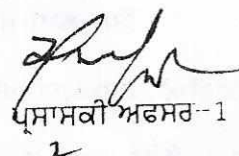 ਪ੍ਰਸਾਸਕੀ ਅਫਸਰ--1